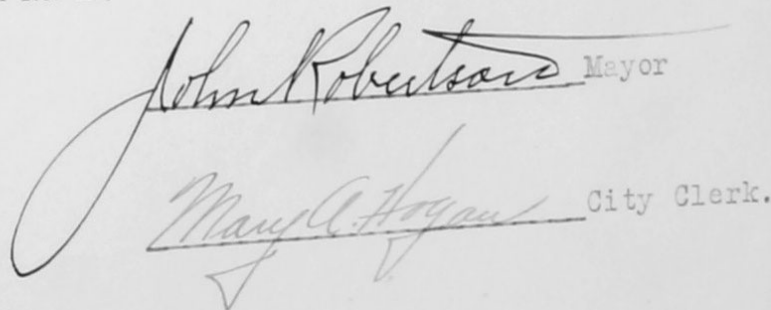 John Robertson Mayor
Mary A. Hogan City Clerk.